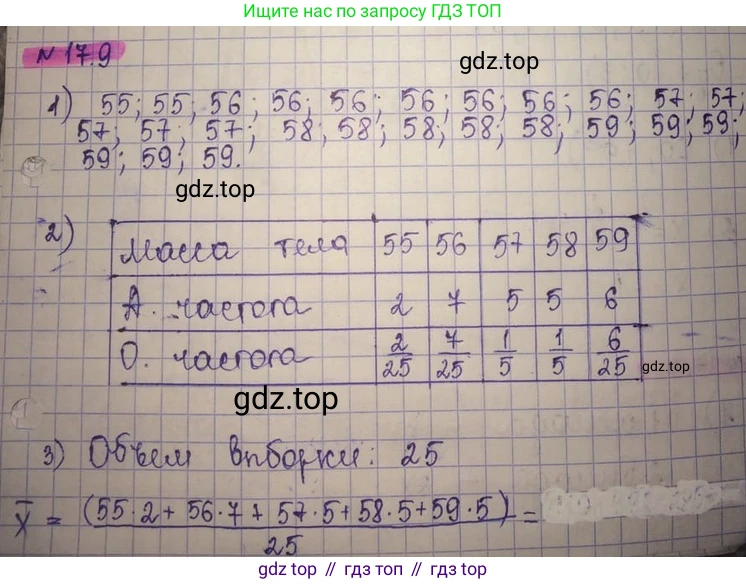 Ищите нас на любой платформе ГДЗ ТОП
N 17.9
gdz.top
1) 55; 55; 56; 56; 56; 56; 56; 56; 56; 57; 57;
57; 57; 57; 58, 58; 58; 58; 58; 59; 59; 59;
59; 59; 59.
gdz.top
2)
Масса тела 55 56 57 58 59
А. частота 2 7 5 5 6
О. частота 2/25 7/25 1/5 1/5 6/25
gdz.top
gdz.top
3) Объем выборки: 25
x̅ = (55·2+56·7+57·5+58·5+59·5)/25 =
gdz.top // гдз.топ // gdz.top // гдз.топ